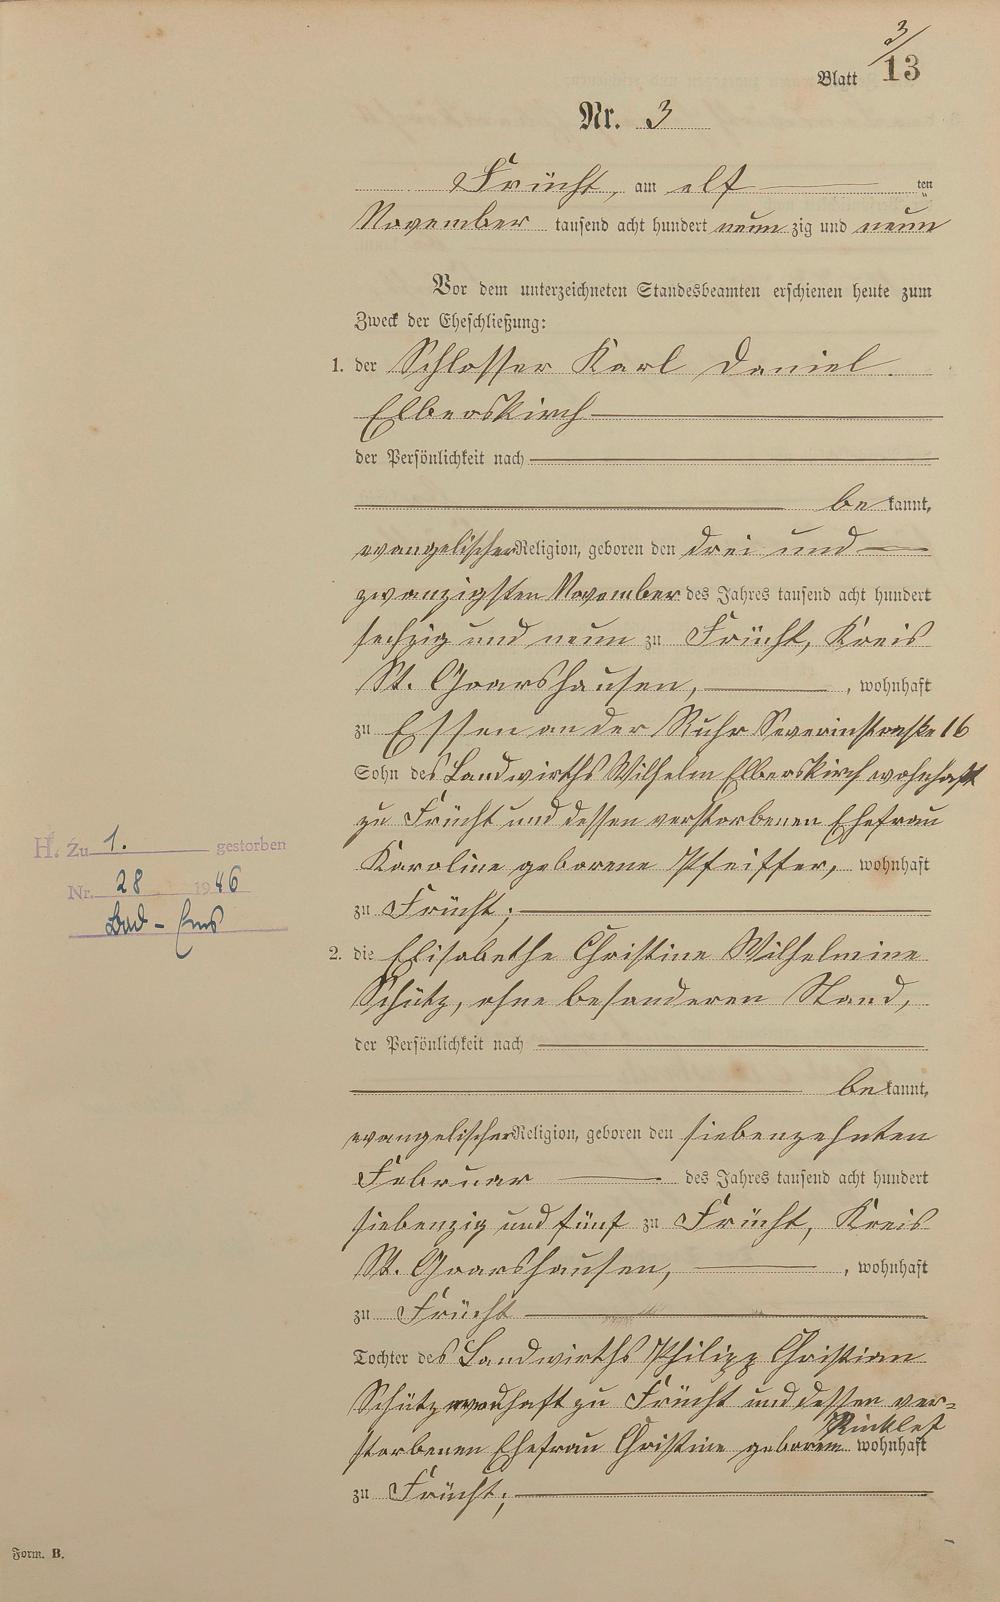 3/
Blatt 13
Nr. 3
Frücht, am elf ten
November tausend acht hundert neun zig und neun
Vor dem unterzeichneten Standesbeamten erschienen heute zum
Zweck der Eheschließung:
1. der Schlosser Karl Daniel
Elberskirch
der Persönlichkeit nach
be kannt,
evangelischer Religion, geboren den drei und
zwanzigsten November des Jahres tausend acht hundert
sechzig und neun zu Frücht, Kreis
St. Goarshausen, , wohnhaft
zu Essen an der Ruhr Severinstraße 16
Sohn des Landwirths Wilhelm Elberskirch wohnhaft
zu Frücht und dessen verstorbenen Ehefrau
Karoline geborene Pfeiffer, wohnhaft
zu Frücht;
H. Zu 1. gestorben
Nr. 28 1946
Bad-Ems
2. die Elisabethe Christine Wilhelmine
Schütz, ohne besonderen Stand,
der Persönlichkeit nach
be kannt,
evangelischer Religion, geboren den siebenzehnten
Februar des Jahres tausend acht hundert
siebenzig und fünf zu Frücht, Kreis
St. Goarshausen, , wohnhaft
zu Frücht
Tochter des Landwirths Philipp Christian
Schütz wohnhaft zu Frücht und dessen ver=
storbenen Ehefrau Christine geborene wohnhaft
zu Frücht;
Form. B.